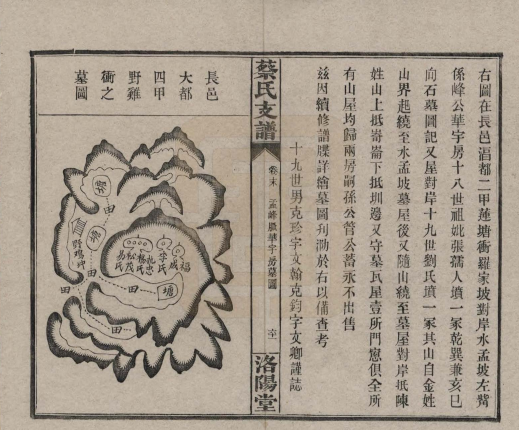 右圖在長邑淊都二甲蓮塘衝羅家坡對岸水孟坡左嘴
係峰公華字房十八世祖妣張孺人墳一冢乾巽兼亥巳
向石墓圖記又屋對岸十九世劉氏墳一冢其山自金姓
山界起繞至水孟坡墓屋後又隨山繞至墓屋對岸抵陳
姓山上抵崙崙下抵圳邊又守墓瓦屋壹所門窻俱全所
有山屋均歸兩房嗣孫公管公蓄永不出售
茲因續修譜牒詳繪墓圖刊泐於右以備查考
十九世男克珍字文翰克鈞字文卿謹誌
蔡氏支譜
卷末
孟峰
華字房墓圖
洛陽堂
長邑
大都
四甲
野雞
衝之
墓圖
福
成
李氏
塘
田
田
田
田